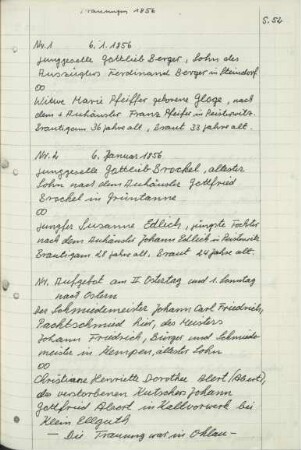 Trauungen 1856
S. 52
Nr. 1 6. 1. 1856
Junggeselle Gottlieb Berger, Sohn des
Auszüglers Ferdinand Berger in Steindorf
∞
Witwe Marie Pfeiffer geborene Gloge, nach
dem + Auhäusler Franz Pfeifer in Peisterwitz.
Bräutigam 36 Jahre alt, Braut 33 Jahre alt.
Nr. 2 6. Januar 1856
Junggeselle Gottlieb Brochel, ältester
Sohn nach dem Auhäusler Gottfried
Brochel in Grüntanne
∞
Jungfer Susanne Edlich, jüngste Tochter
nach dem Auhäusler Johann Edlich in Peisterwitz
Bräutigam 28 Jahre alt. Braut 24 Jahre alt.
Nr. Aufgebot am II. Ostertag und 1. Sonntag
nach Ostern
Der Schmiedemeister Johann Carl Friedrich,
Pachtschmied hier, des Meisters
Johann Friedrich, Bürger und Schmiede
meister in Kempen, ältester Sohn
∞
Christiane Henriette Dorothea Alert (Abert),
des verstorbenen Kutschers Johann
Gottfried in Kaltvorwerk bei
Klein Ellguth
— Die Trauung war in Ohlau —